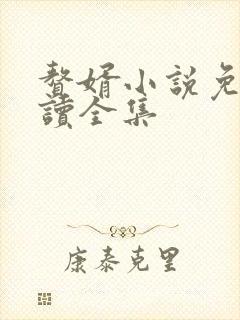 贅婿小說免
讀全集
康泰克里